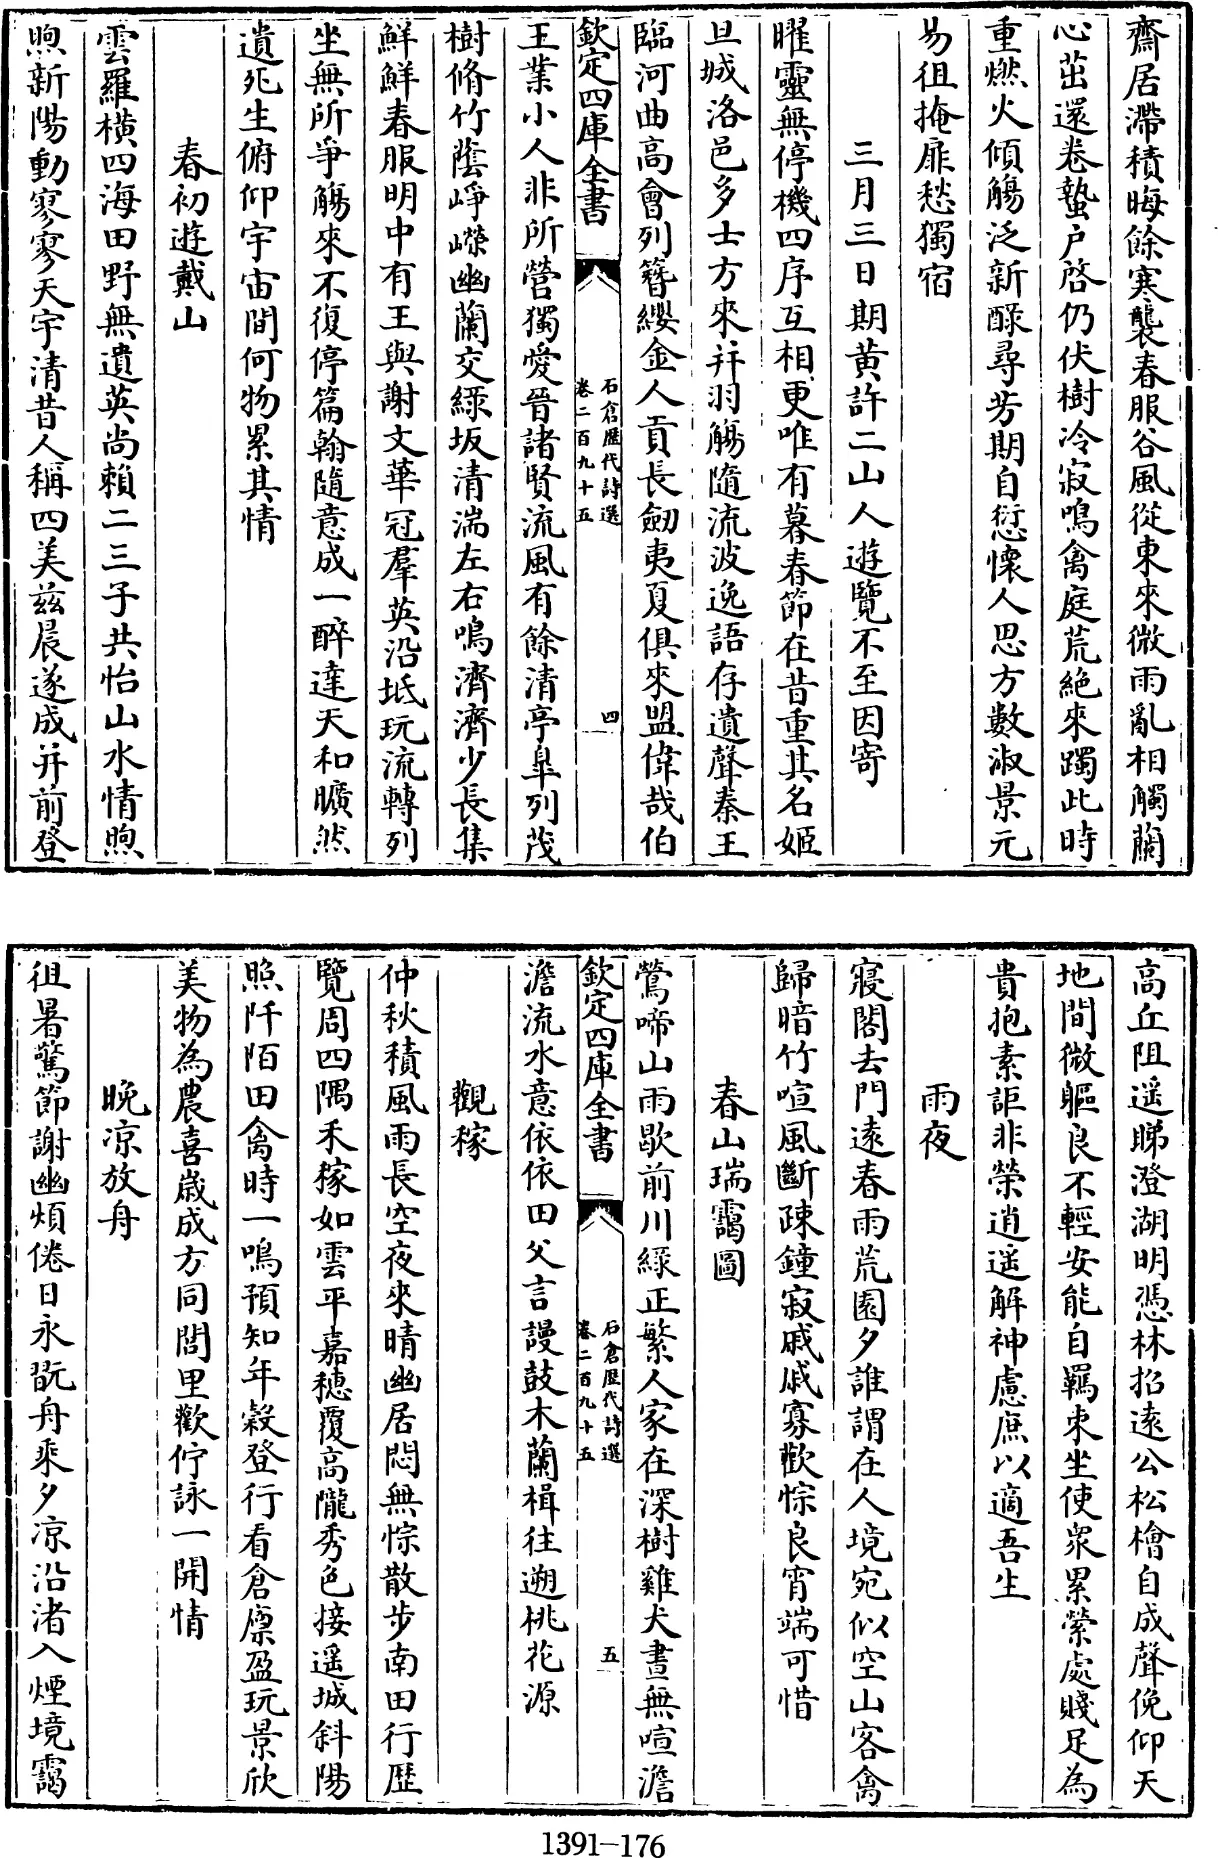 齋居滯積晦餘寒襲春服谷風從東來微雨亂相觸蘭
心茁還卷蟄户啓仍伏樹冷寂鳴禽庭荒絶來躅此時
重燃火傾觴泛新醁尋芳期自愆懷人思方數淑景元
易徂掩扉愁獨宿
三月三日期黄許二山人遊覽不至因寄
曜靈無停機四序互相更唯有暮春節在昔重其名姬
旦城洛邑多士方來并羽觴隨流波逸語存遺聲秦王
臨河曲高會列簪纓金人貢長劒夷夏俱來盟偉哉伯
欽定四庫全書
石倉歷代詩選
卷二百九十五
四
王業小人非所營獨愛晉諸賢流風有餘清亭臯列茂
樹脩竹蔭崢嶸幽蘭交緑坂清湍左右鳴濟濟少長集
鮮鮮春服明中有王與謝文華冠羣英沿坻玩流轉列
坐無所爭觴來不復停篇翰隨意成一醉達天和曠然
遺死生俯仰宇宙間何物累其情
春初遊戴山
雲羅横四海田野無遺英尚賴二三子共怡山水情煦
煦新陽動寥寥天宇清昔人稱四美兹晨遂成并前登
高丘阻遥睇澄湖明憑林招遠公松檜自成聲俛仰天
地間微軀良不輕安能自羈束坐使衆累縈處賤足為
貴抱素詎非榮逍遥解神慮庶以適吾生
雨夜
寢閣去門遠春雨荒園夕誰謂在人境宛似空山客禽
歸暗竹喧風斷疎鐘寂戚戚寡歡悰良宵端可惜
春山瑞靄圖
鶯啼山雨歇前川緑正繁人家在深樹雞犬晝無喧澹
欽定四庫全書
石倉歷代詩選
卷二百九十五
五
澹流水意依依田父言謾鼓木蘭楫往遡桃花源
觀稼
仲秋積風雨長空夜來晴幽居悶無悰散步南田行歷
覽周四隅禾稼如雲平嘉穗覆高隴秀色接遥城斜陽
照阡陌田禽時一鳴預知年穀登行看倉廪盈玩景欣
美物為農喜嵗成方同閭里歡佇詠一開情
晚凉放舟
徂暑驚節謝幽煩倦日永翫舟乘夕凉沿渚入煙境靄
1391-176